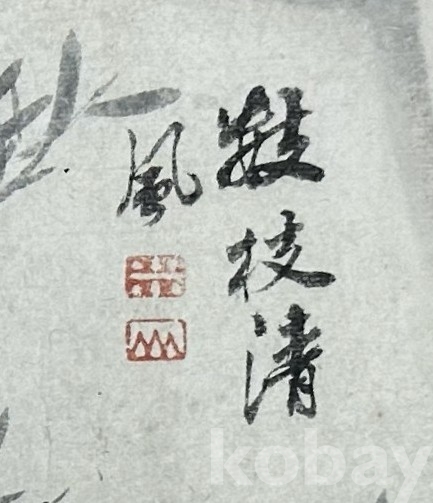 數枝清
風
kobay